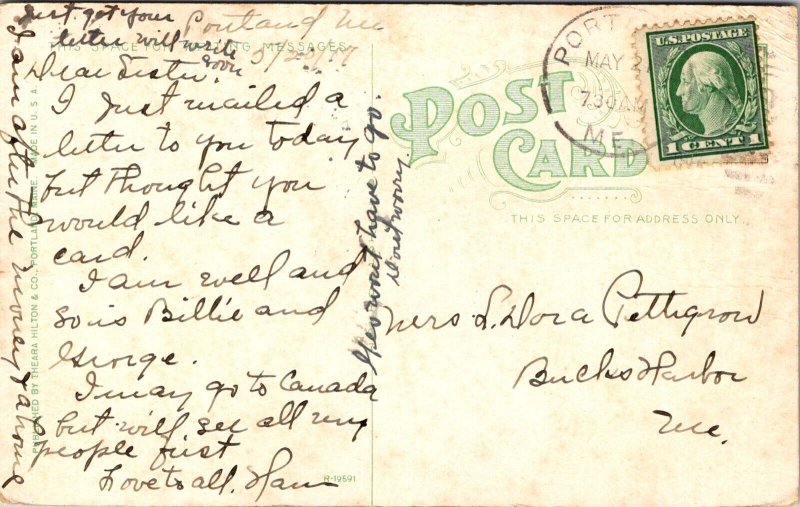 Just got your
letter will write
soon
Portland Me
5/20/17
THIS SPACE FOR WRITING MESSAGES
Dear Sister.
I just mailed a
letter to you today
but thought you
would like a
card.
I am well and
so is Billie and
George.
I may go to Canada
but will see all my
people first
Love to all. Ham
I am after the money & a home
wont have to go.
Dont worry
PUBLISHED BY THEARA HILTON & CO., PORTLAND, MAINE. MADE IN U.S.A.
R-19591
POST CARD
THIS SPACE FOR ADDRESS ONLY
PORT
MAY 2
7 30 AM
ME.
U.S. POSTAGE
1 CENT 1
Mrs L. Dora Pettigrow
Bucks Harbor
Me.